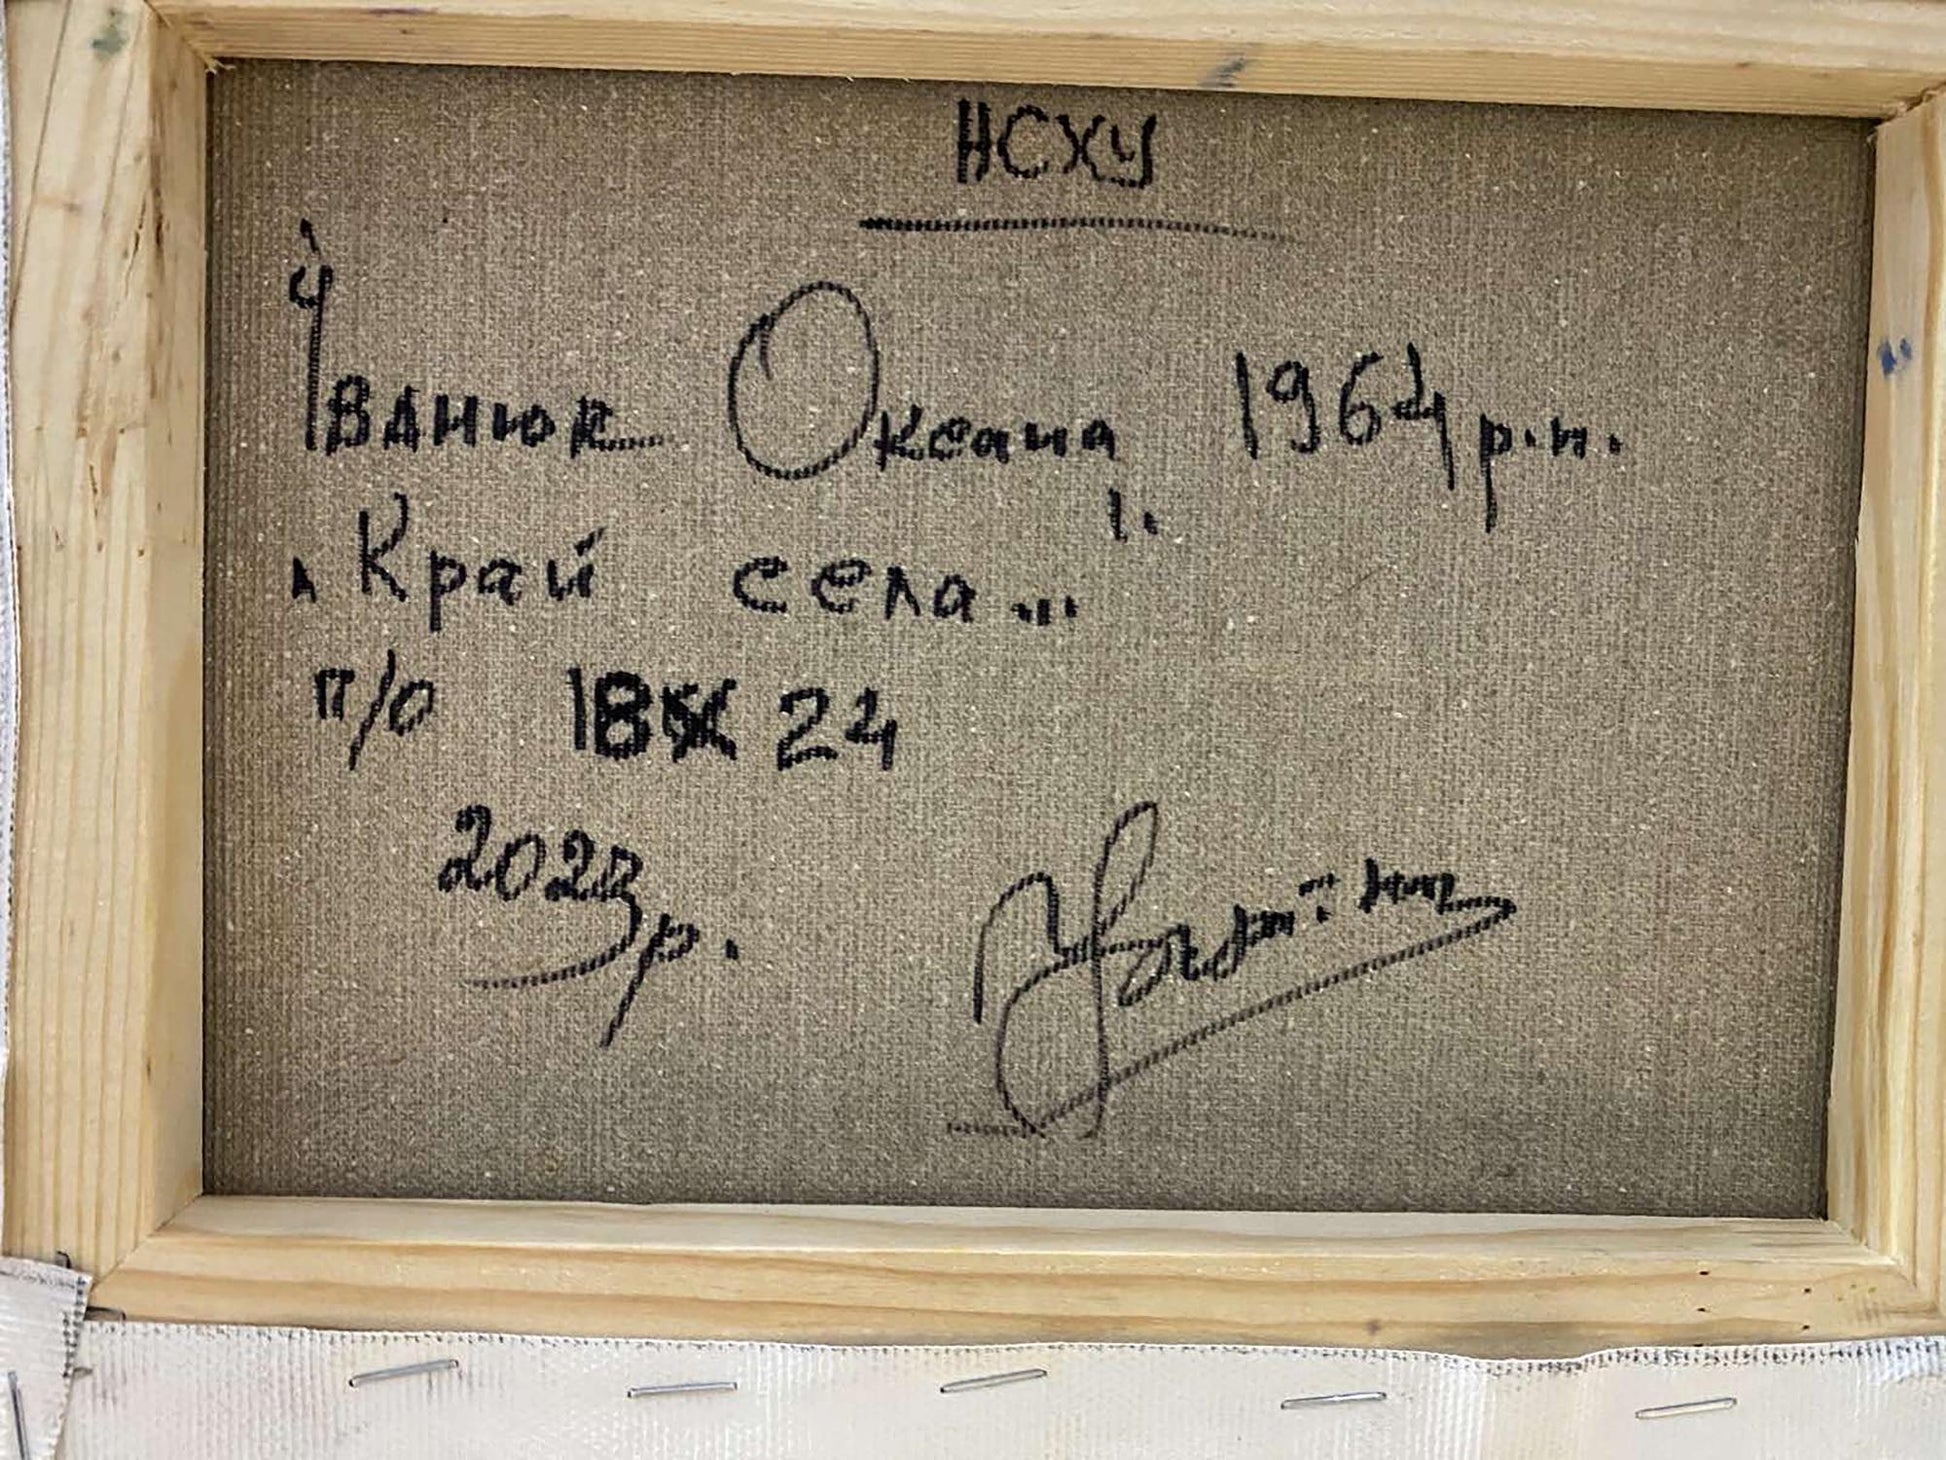 НСХУ
Іванюк Оксана 1964 р.н.
„Край села..."
п/о 18х 24
2023р.